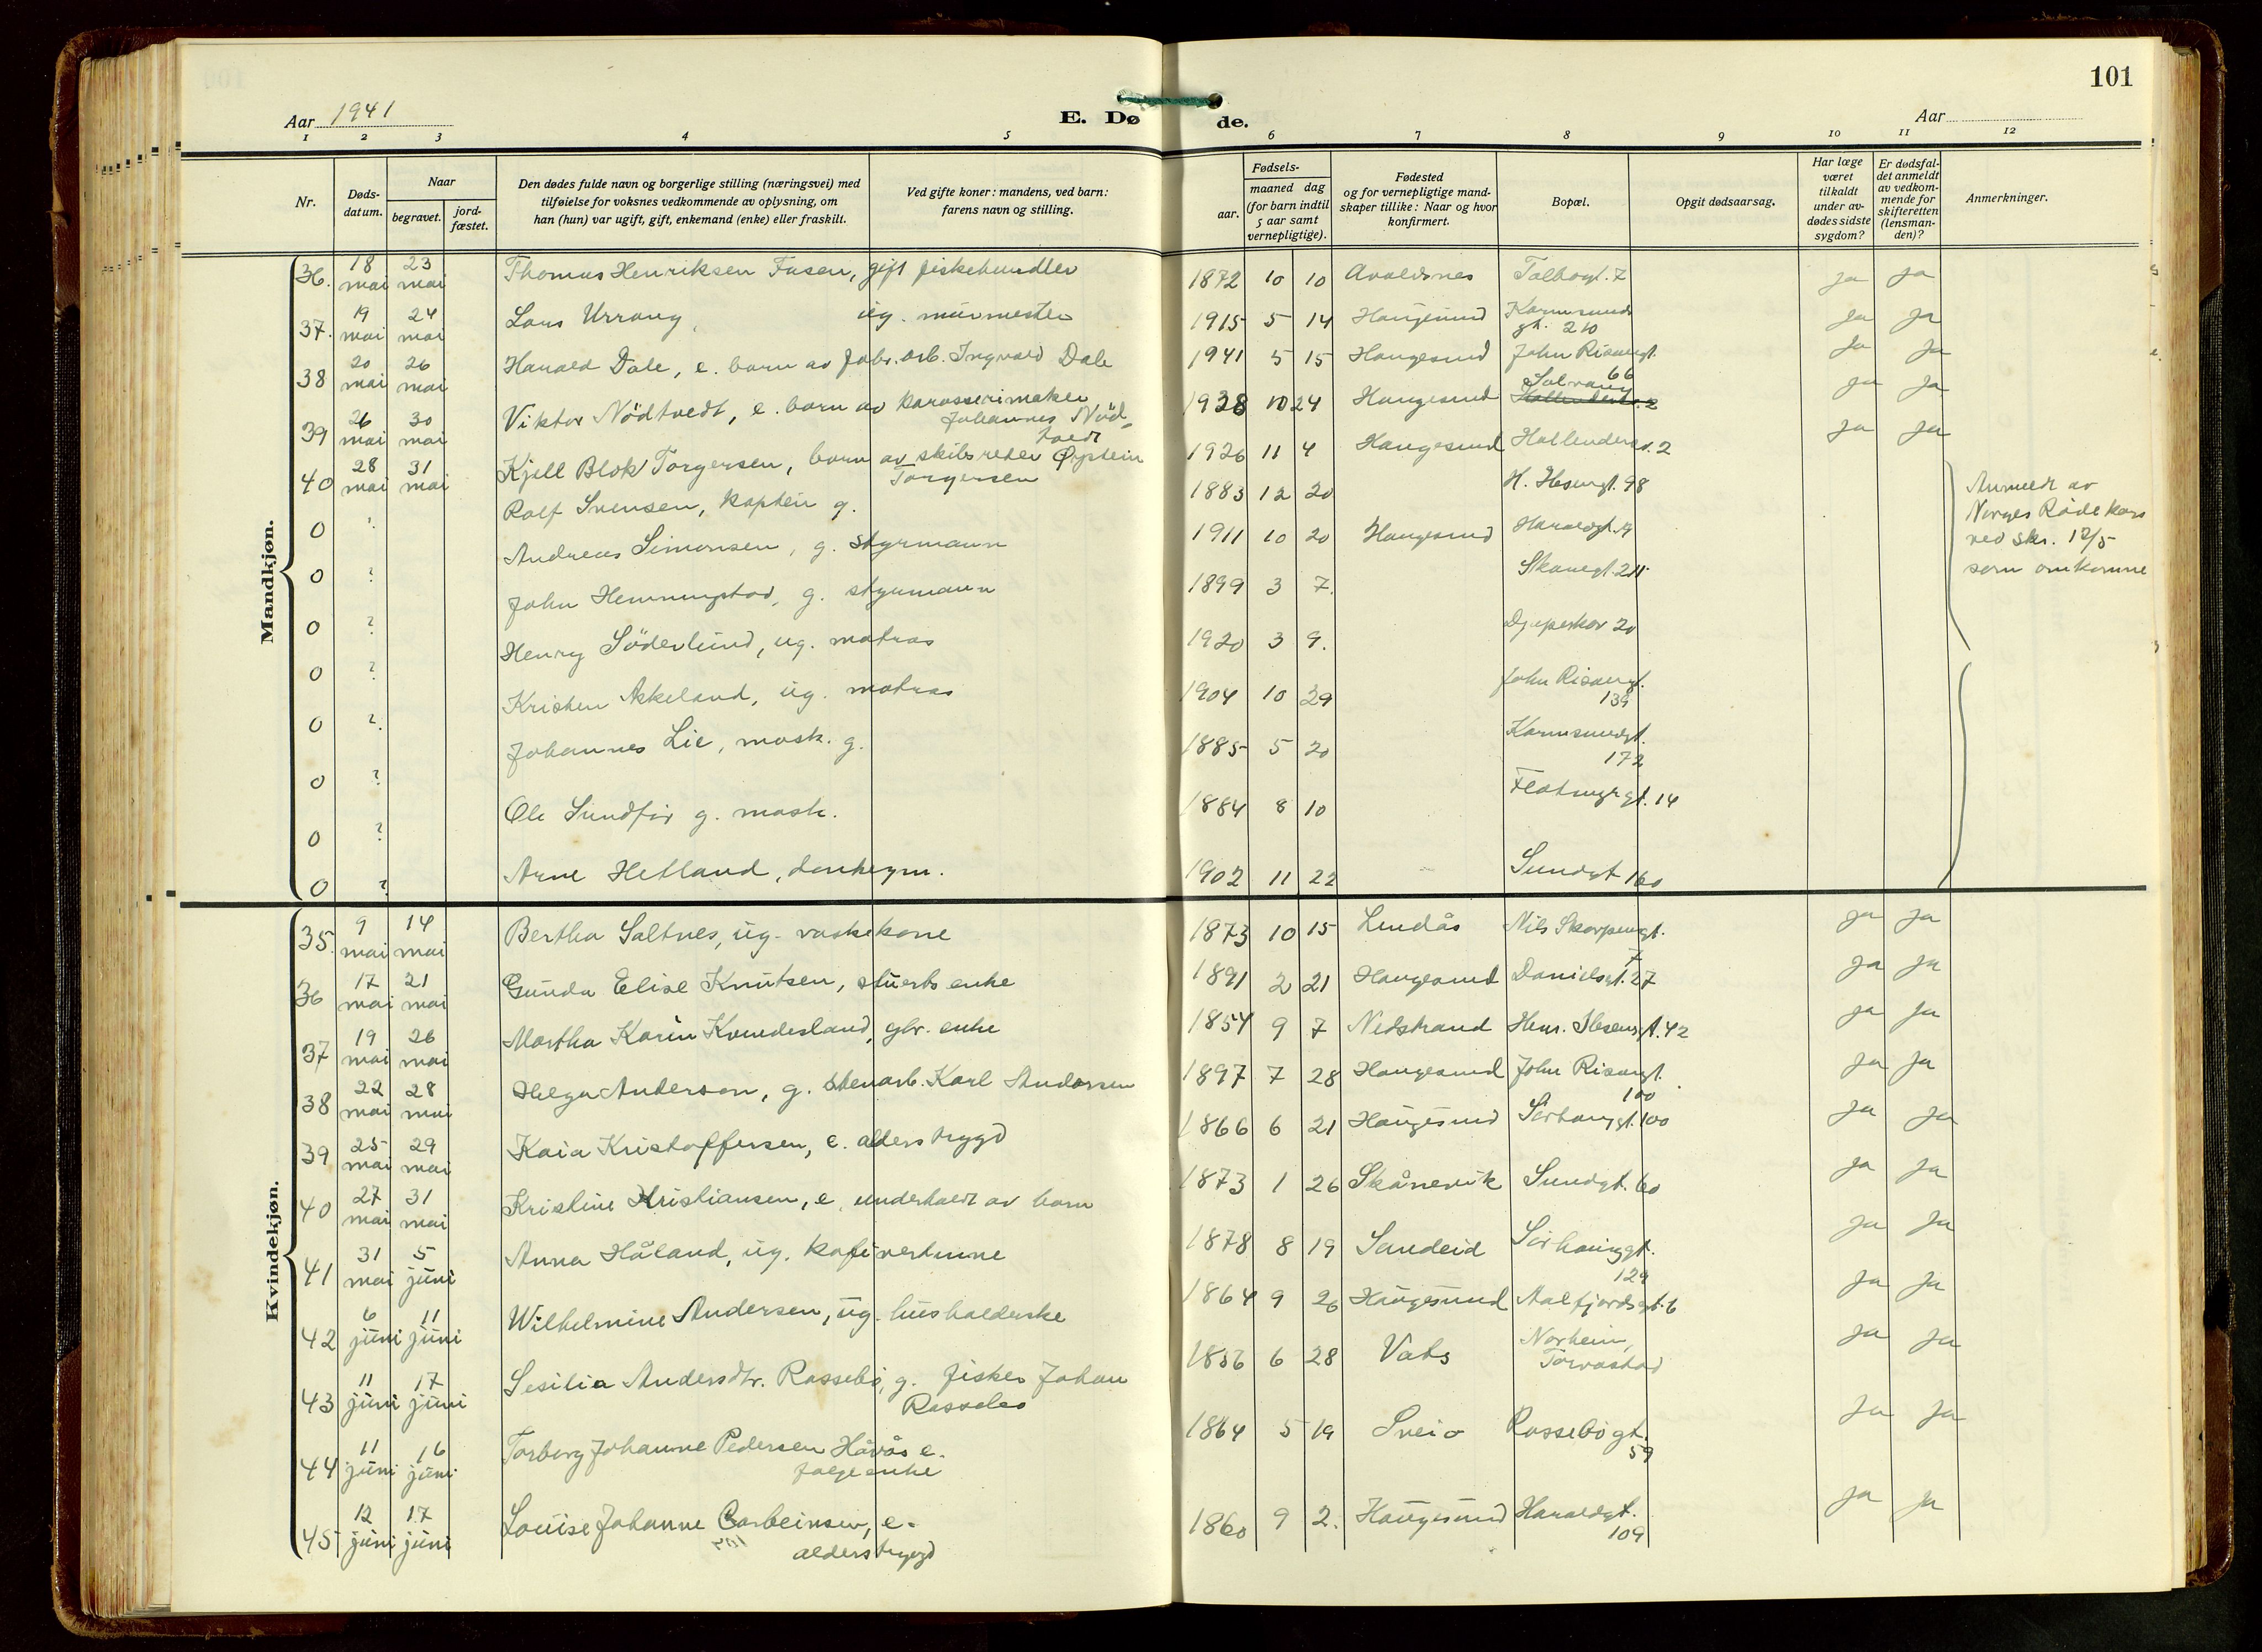 101
Aar 1941
E. Dø de.
Aar
1 2 3 4 5 6 7 8 9 10 11 12
Nr.
Døds-datum.
Naar
begravet.
jord-fæstet.
Den dødes fulde navn og borgerlige stilling (næringsvei) med
tilføielse for voksnes vedkommende av oplysning, om
han (hun) var ugift, gift, enkemand (enke) eller fraskilt.
Ved gifte koner: mandens, ved barn:
farens navn og stilling.
Fødsels-
aar.
maaned dag
(for barn indtil
5 aar samt
vernepligtige).
Fødested
og for vernepligtige mand-
skaper tillike: Naar og hvor
konfirmert.
Bopæl.
Opgit dødsaarsag.
Har læge
været
tilkaldt
under av-
dødes sidste
sygdom?
Er dødsfal-
det anmeldt
av vedkom-
mende for
skifteretten
(lensman-
den)?
Anmerkninger.
Mandkjøn.
36. 18 mai 23 mai Thomas Henriksen Fasen, gift fiskehandler 1872 10 10 Avaldsnes Talbogt. 7 ja ja
37. 19 mai 24 mai Lars Urrang, ug. murmester 1915 5 14 Haugesund Karmsundsgt. 210 ja ja
38 20 mai 26 mai Harald Dale, e. barn av fabr. arb. Ingvald Dale 1941 5 15 Haugesund John Risøengt. 66 ja ja
39 26 mai 30 mai Viktor Nödtvedt, e. barn av karosserimaker Johannes Nödtvedt 1938 10 24 Haugesund Solvang ja ja
40 28 mai 31 mai Kjell Blok Torgersen, barn av skibsreder Øystein Torgersen 1926 11 4 Haugesund Hollenderv. 2 ja ja
0 ? Rolf Svensen, kaptein g. 1883 12 20 H. Ibsengt. 98
0 ? Andreas Simonsen, g. styrmann 1911 10 20 Haugesund Haraldgt.
0 ? John Hemmingstad, g. styrmann 1899 3 7. Skaregt. 211
0 ? Henry Söderlund, ug. matros 1920 3 9. Djupeskar 20
0 ? Kristen Askeland, ug. matros 1904 10 29 John Risøengt. 139
0 ? Johannes Lie, mask. g. 1885 5 20 Karmsundgt. 172
0 ? Ole Sundför g. mask. 1884 8 10 Flotmyrgt. 14
0 ? Arne Hetland, donkeym. 1902 11 22 Sundgt 160
Anmeldt av
Norges Røde kors
ved skr. 12/5
som omkomne
Kvindekjøn.
35. 9 mai 14 mai Bertha Saltnes, ug. vaskekone 1873 10 15 Lindås Nils Skorpengt. 7 ja ja
36 17 mai 21 mai Gunda Elise Knutsen, stuerts enke 1891 2 21 Haugesund Danielsgt. 27 ja ja
37 19 mai 26 mai Martha Karin Kvindesland, gbr. enke 1854 9 7 Nedstrand Henr. Ibsensgt. 42 ja ja
38 22 mai 28 mai Helga Anderson, g. stenarb. Karl Anderssen 1897 7 28 Haugesund John Risøengt. 100 ja ja
39 25 mai 29 mai Kaia Kristoffersen, e. alderstrygd 1866 6 21 Haugesund Sörhauggt. 100 ja ja
40 27 mai 31 mai Kristine Kristiansen, e. underholdt av barn 1873 1 26 Skånevik Sundgt. 60 ja ja
41 31 mai 5 juni Anna Håland, ug. kafévertinne 1878 8 19 Sandeid Sörhauggt. 129 ja ja
42 6 juni 11 juni Wilhelmine Andersen, ug. husholderske 1864 9 26 Haugesund Aalfjordsgt. 6 ja ja
43 11 juni 17 juni Sesilia Andersdtr. Rossebö, g. fisker Johan Rossebö 1856 6 28 Vats Norheim, Torvastad ja ja
44 11 juni 16 juni Torborg Johanne Pedersen Håvås e. folgeenke 1864 5 19 Sveio Rossebögt. 59 ja ja
45 12 juni 17 juni Louise Johanne e. alderstrygd 1860 9 2. Haugesund Haraldgt. 109 ja ja